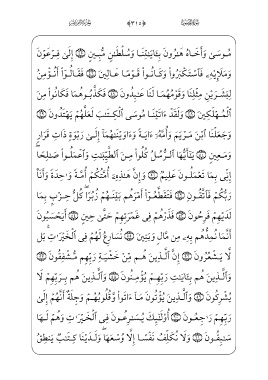 مُوسَىٰ وَأَخَاهُ هَٰرُونَ بِـَٔايَٰتِنَا وَسُلْطَٰنٍ مُّبِينٍ إِلَىٰ فِرْعَوْنَ
وَمَلَإِيْهِۦ فَٱسْتَكْبَرُوا۟ وَكَانُوا۟ قَوْمًا عَالِينَ فَقَالُوٓا۟ أَنُؤْمِنُ
لِبَشَرَيْنِ مِثْلِنَا وَقَوْمُهُمَا لَنَا عَٰبِدُونَ فَكَذَّبُوهُمَا فَكَانُوا۟ مِنَ
ٱلْمُهْلَكِينَ وَلَقَدْ ءَاتَيْنَا مُوسَى ٱلْكِتَٰبَ لَعَلَّهُمْ يَهْتَدُونَ
وَجَعَلْنَا ٱبْنَ مَرْيَمَ وَأُمَّهُۥٓ ءَايَةً وَءَاوَيْنَٰهُمَآ إِلَىٰ رَبْوَةٍ ذَاتِ قَرَارٍ
وَمَعِينٍ يَٰٓأَيُّهَا ٱلرُّسُلُ كُلُوا۟ مِنَ ٱلطَّيِّبَٰتِ وَٱعْمَلُوا۟ صَٰلِحًا
إِنِّى بِمَا تَعْمَلُونَ عَلِيمٌ وَإِنَّ هَٰذِهِۦٓ أُمَّتُكُمْ أُمَّةً وَٰحِدَةً وَأَنَا۠
رَبُّكُمْ فَٱتَّقُونِ فَتَقَطَّعُوٓا۟ أَمْرَهُم بَيْنَهُمْ زُبُرًا كُلُّ حِزْبٍۭ بِمَا
لَدَيْهِمْ فَرِحُونَ فَذَرْهُمْ فِى غَمْرَتِهِمْ حَتَّىٰ حِينٍ أَيَحْسَبُونَ
أَنَّمَا نُمِدُّهُم بِهِۦ مِن مَّالٍ وَبَنِينَ نُسَارِعُ لَهُمْ فِى ٱلْخَيْرَٰتِ بَل
لَّا يَشْعُرُونَ إِنَّ ٱلَّذِينَ هُم مِّنْ خَشْيَةِ رَبِّهِم مُّشْفِقُونَ
وَٱلَّذِينَ هُم بِـَٔايَٰتِ رَبِّهِمْ يُؤْمِنُونَ وَٱلَّذِينَ هُم بِرَبِّهِمْ لَا
يُشْرِكُونَ وَٱلَّذِينَ يُؤْتُونَ مَآ ءَاتَوا۟ وَّقُلُوبُهُمْ وَجِلَةٌ أَنَّهُمْ إِلَىٰ
رَبِّهِمْ رَٰجِعُونَ أُو۟لَٰٓئِكَ يُسَٰرِعُونَ فِى ٱلْخَيْرَٰتِ وَهُمْ لَهَا
سَٰبِقُونَ وَلَا نُكَلِّفُ نَفْسًا إِلَّا وُسْعَهَا وَلَدَيْنَا كِتَٰبٌ يَنطِقُ